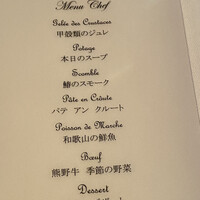 Menu Chef
Gelée des Crustaces
甲殻類のジュレ
Potage
本日のスープ
Scomble
鰆のスモーク
Pâte en Croûte
パテ アン クルート
Poisson de Marche
和歌山の鮮魚
Bœuf
熊野牛 季節の野菜
Dessert